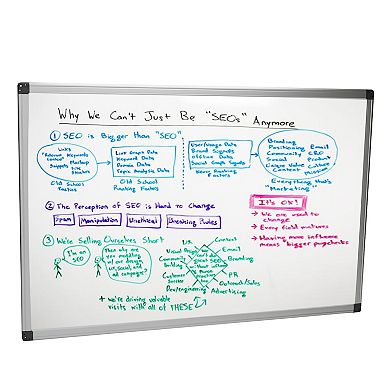 Why We Can't Just Be "SEOs" Anymore
1 SEO is Bigger than "SEO"
Links
"Relevant Keywords
Content" Markup
Snippets Site
Old School
Tactics
Link Graph Data
Keyword Data
Domain Data
Topic Analysis Data
Old School
Ranking Factors
User/Usage Data
Brand Signals
Offline Data
Social Graph Signals
Newer Ranking
Factors
Branding
Positioning Email
Community CRO
Social Product
Unique Value Culture
Content Mission
Everything that's
"Marketing"
2 The Perception of SEO is Hard to Change
Spam
Manipulation
Unethical
Breaking Rules
It's OK!
→ We are used to
change
→ Every field matures
→ Having more influence
means bigger paychecks
3 We're Selling Ourselves Short
I'm an
SEO
Then why are
you meddling
w/ our design,
UX, social, and
ad campaigns?
UX
Content
Visual Design
Email
Community
Building
Branding
Customer
Service
PR
Outreach/Sales
Dev/engineering
Advertising
+ we're driving valuable
visits with all of THESE